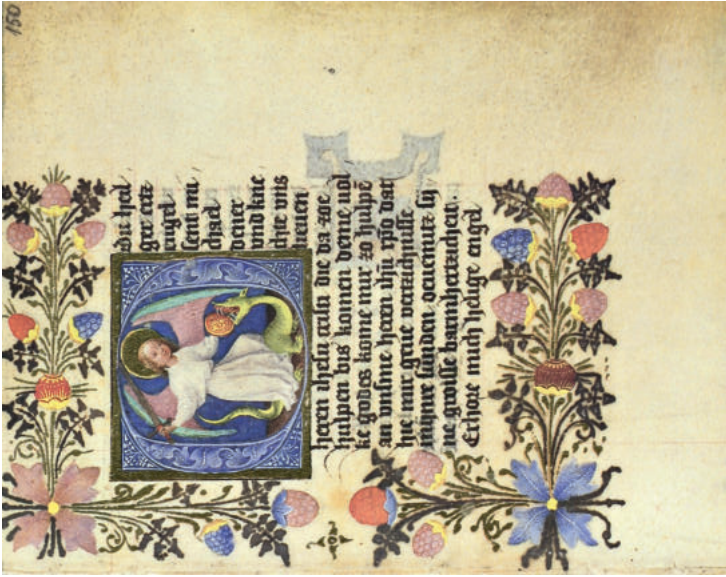 150
hei
ger ertz
engel
sent mi
chael
dener
vnd kie
chie vns
heren
heren ihesu cristi die da zoe
hulpen bis komen deme uol
ke godes kome mir zo hulpe
an vnsme heren ihu xpo dat
hie mir geue verzichnisse
mynre sunden ouermitz sy
ne groisse barmhertzicheit.
Erhore mich heilige engel